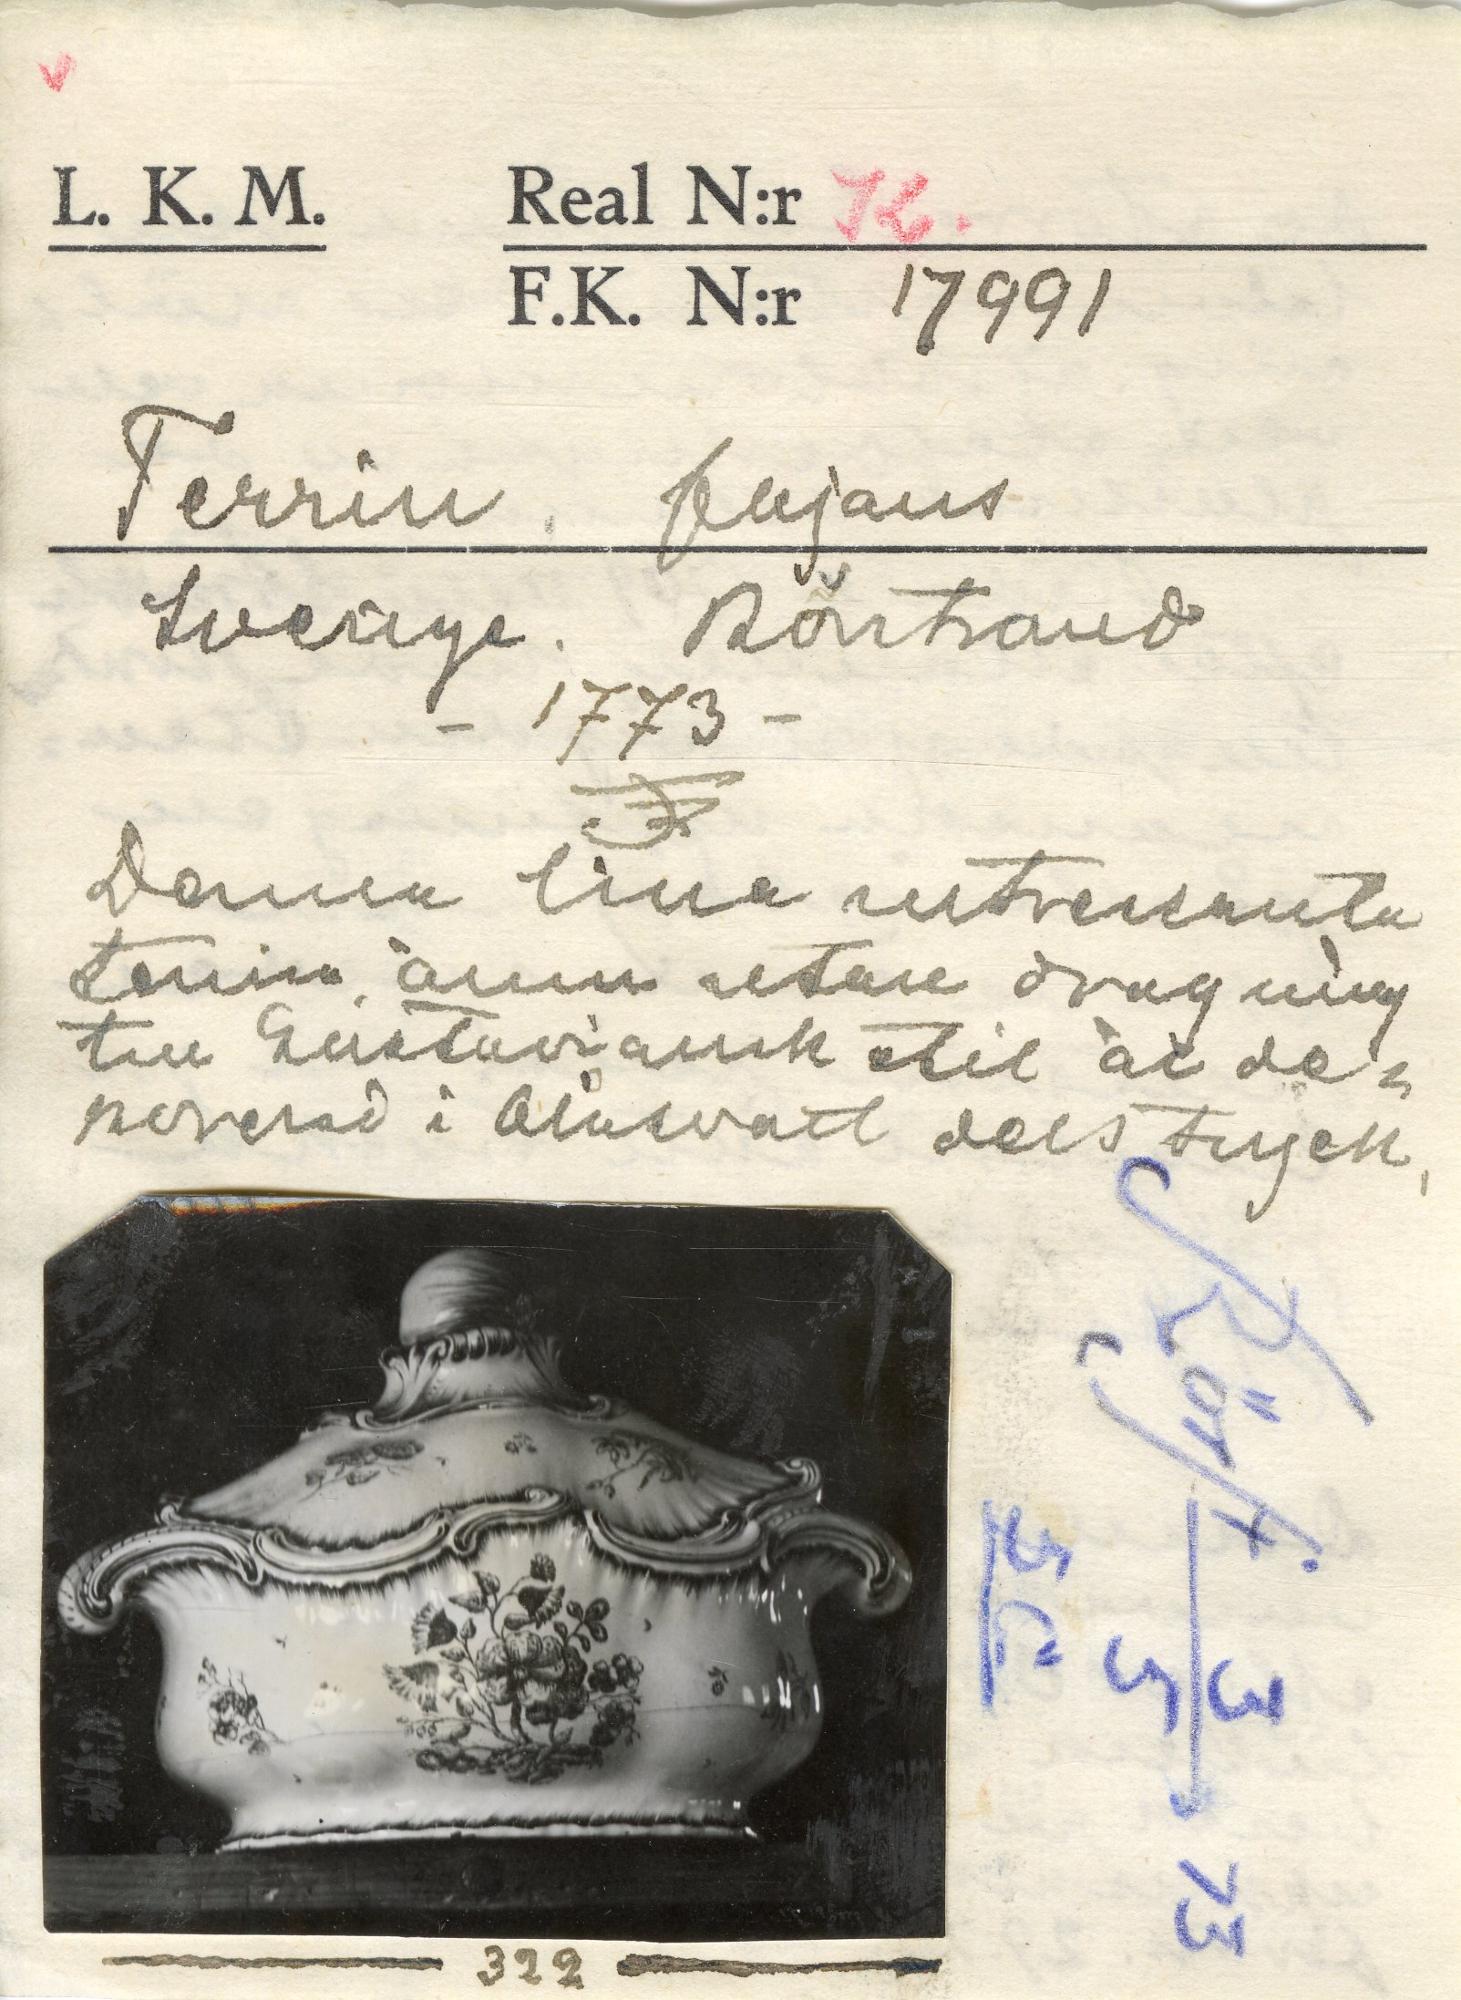 L. K. M.
Real N:r 76.
F.K. N:r 17991
Terrin. fajans
Sverige. Rörstrand
- 1773 -
Denna fina
terrin, ännu utan dragning
till Gustaviansk stil är de-
korerad i blåsvart dels tryck,
Röst.
3
5
73
322